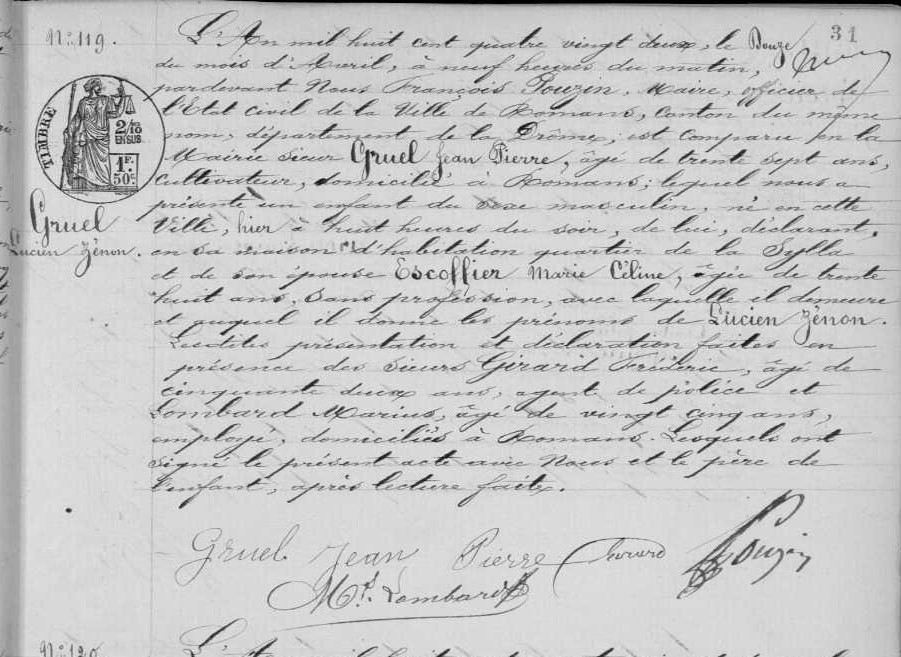 31
N° 119.
L'An mil huit cent quatre vingt deux, le Douze
du mois d'Avril, à neuf heures du matin,
pardevant Nous François Pouzin, Maire, officier de
l'Etat civil de la Ville de Romans, canton du même
nom, département de la Drôme, est comparu en la
Mairie sieur Gruel Jean Pierre, âgé de trente sept ans,
Cultivateur, domicilié à Romans; lequel nous a
présenté un enfant du sexe masculin, né en cette
Ville, hier à huit heures du soir, de lui, déclarant,
en sa maison d'habitation quartier de la Sylla
et de son épouse Escoffier Marie Céline, âgée de trente
huit ans, sans profession, avec laquelle il demeure
et auquel il donne les prénoms de Lucien Zénon.
Lesdites présentation et déclaration faites en
présence des sieurs Girard Fréderic, âgé de
cinquante deux ans, agent de police et
Lombard Marius, âgé de vingt cinq ans,
employé, domiciliés à Romans. Lesquels ont
signé le présent acte avec Nous et le père de
l'enfant, après lecture faite.
TIMBRE
2/10
EN SUS.
1F.
50C.
Gruel
Lucien Zénon.
Gruel Jean Pierre Girard Pouzin
Ms. Lombard
N° 120
L'An mil huit